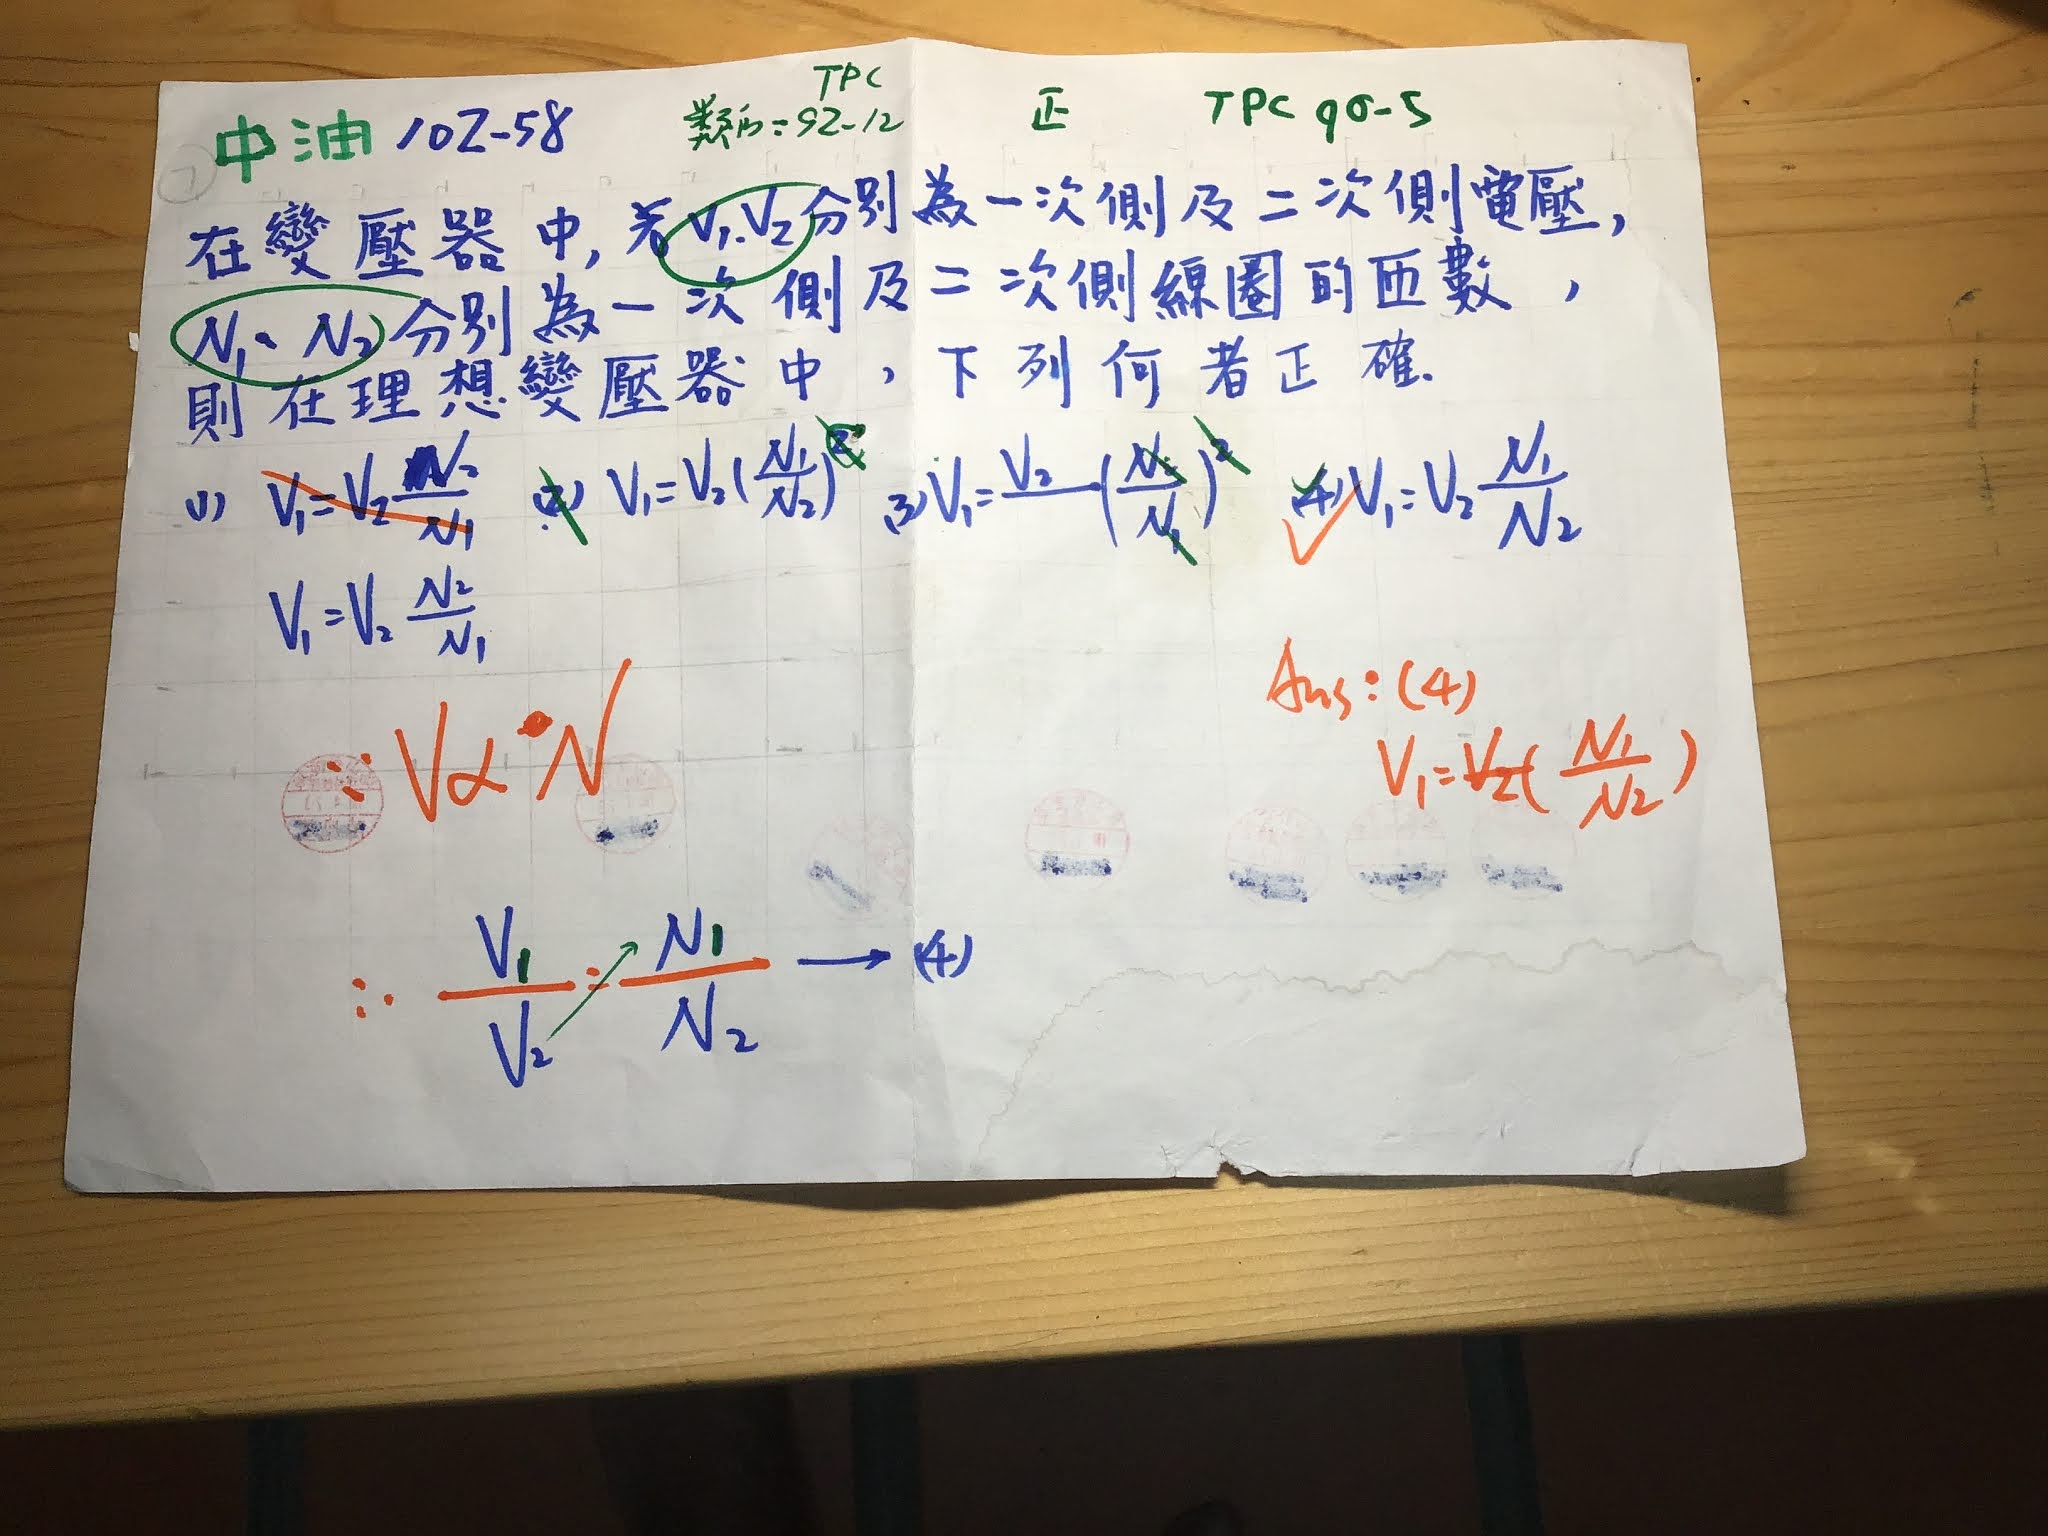 中油 102-58 TPC 正 TPC 90-5
類似=92-12
在變壓器中,若V₁、V₂分別為一次側及二次側電壓,
N₁、N₂分別為一次側及二次側線圈的匝數,
則在理想變壓器中,下列何者正確.
(1) V₁=V₂ N₂/N₁ (2) V₁=V₂(N₁/N₂)² (3) V₁=V₂(N₂/N₁)² (4) V₁=V₂ N₁/N₂
V₁=V₂ N₂/N₁
Ans:(4)
∵ V∝N
V₁=V₂(N₁/N₂)
∴ V₁/V₂=N₁/N₂ → (4)